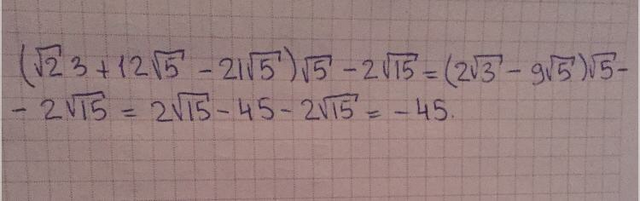 (√2 3 + 12√5 - 21√5)√5 - 2√15 = (2√3 - 9√5)√5 -
- 2√15 = 2√15 - 45 - 2√15 = -45.